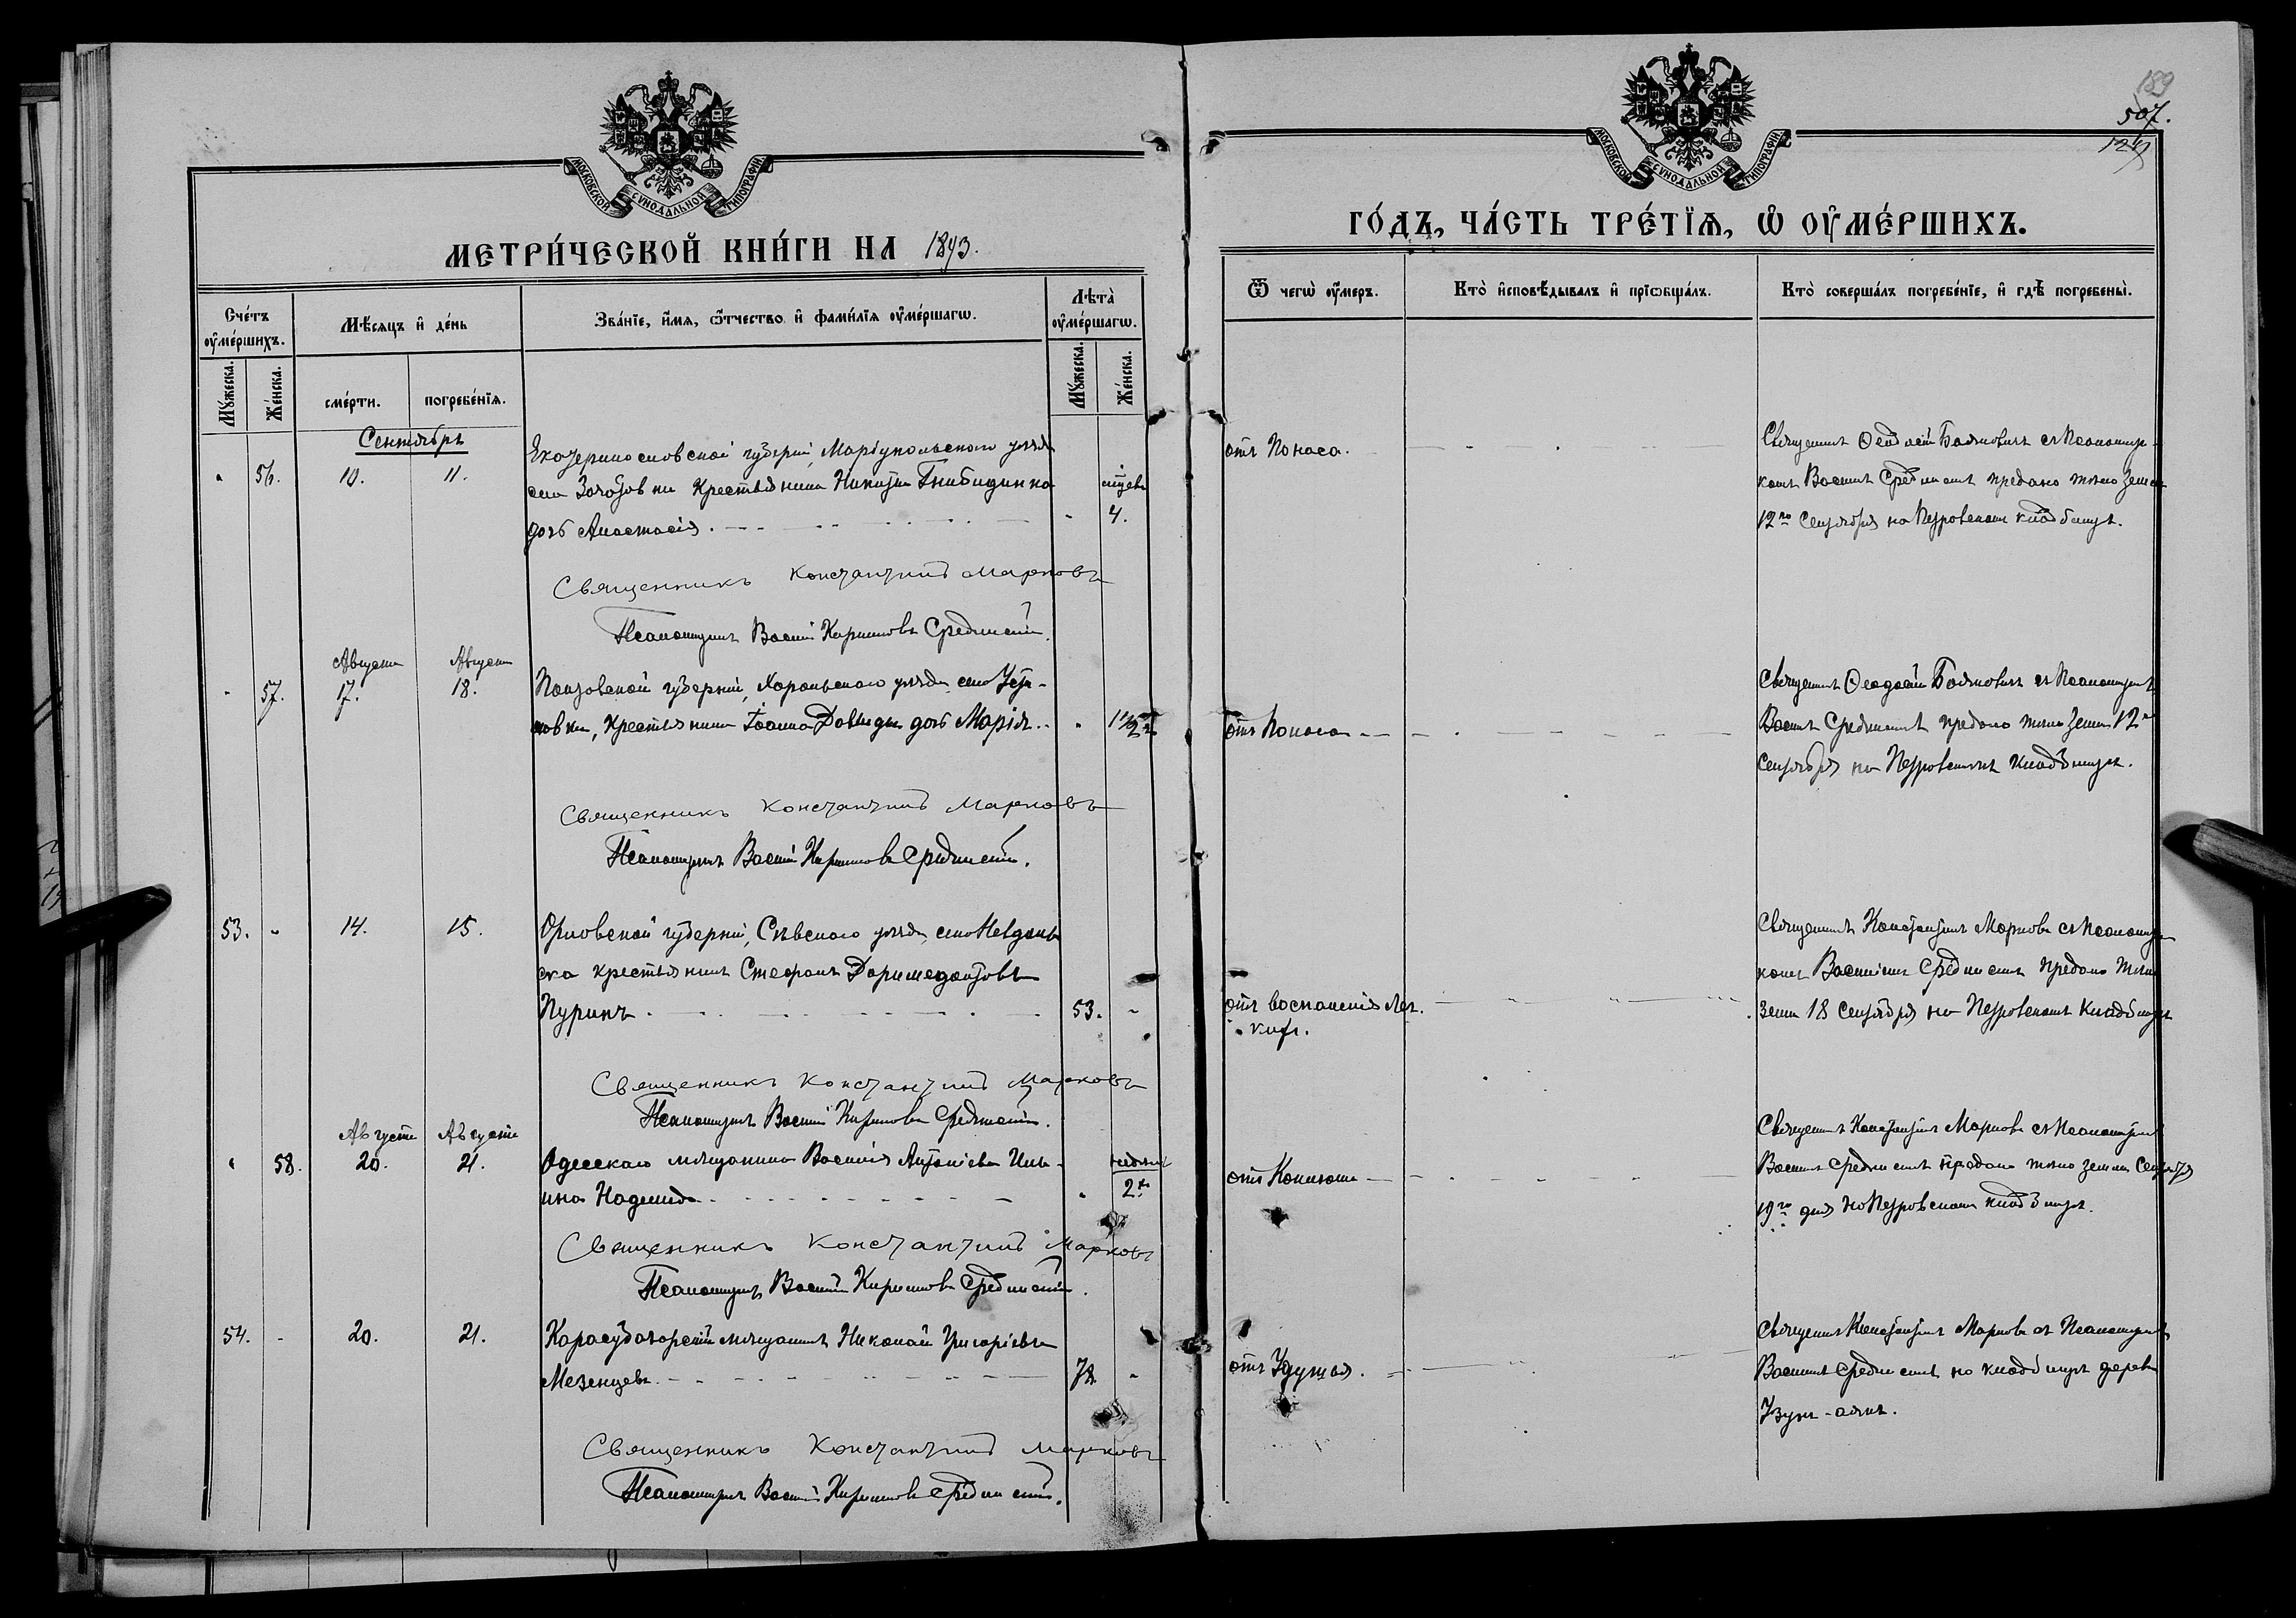 МОСКОВСКОЙ СѴНОДАЛЬНОЙ ТИПОГРАФІИ
МЕТРИ́ЧЕСКОЙ КНИ́ГИ НА 1893.
Сче́тъ ᲂу҆ме́ршихъ.
Мѣ́сяцъ и҆ де́нь
Зва́нїе, и҆́мѧ, ѻ҆́тчество и҆ фами́лїѧ ᲂу҆ме́ршагѡ.
Лѣ́та ᲂу҆ме́ршагѡ.
Мꙋ́жеска.
Же́нска.
сме́рти.
погребе́нїѧ.
Мꙋ́жеска.
Же́нска.
Сентябрь
56. 10. 11.
Екатеринославской губерніи, Маріупольскаго уѣзда
села крестьянина Никиты
дочь Анастасія.
4.
Священникъ Константинъ Марковъ
Псаломщикъ Василій Кириловъ Срединскій.
Августа Августа
57. 17. 18.
Полтавской губерніи, Хорольскаго уѣзда, села
крестьянина Іоанна дочь Марія
Священникъ Константинъ Марковъ
Псаломщикъ Василій Кириловъ Срединскій.
53. - 14. 15.
Орловской губерніи, Сѣвскаго уѣзда, села
крестьянинъ Стефанъ Доримедонтовъ
Пуринъ 53. -
Священникъ Константинъ Марковъ
Псаломщикъ Василій Кириловъ Срединскій.
Августа Августа
58. 20. 21.
Одесскаго мѣщанина Василія Антоніева
Надежда
2
Священникъ Константинъ Марковъ
Псаломщикъ Василій Кириловъ Срединскій.
54. - 20. 21.
Карасубазарскій мѣщанинъ Николай Григоріевъ
Мезенцевъ 78 -
Священникъ Константинъ Марковъ
Псаломщикъ Василій Кириловъ Срединскій.
189
507.
МОСКОВСКОЙ СѴНОДАЛЬНОЙ ТИПОГРАФІИ
ГО́ДЪ, ЧА́СТЬ ТРЕ́ТЇѦ, Ѡ҆ ОУ҆МЕ́РШИХЪ.
Ѿ чегѡ̀ ᲂу҆́меръ.
Кто̀ и҆сповѣ́дывалъ и҆ прїѡбща́лъ.
Кто̀ соверша́лъ погребе́нїе, и҆ гдѣ̀ погребены̀.
отъ Поноса.
Священникъ Ѳеодосій Баяновичъ съ Псаломщи-
комъ Василіемъ Срединскимъ предано тѣло земли
12го Сентября на Петровскомъ кладбищѣ.
отъ Поноса
Священникъ Ѳеодосій Баяновичъ съ Псаломщикомъ
Василіемъ Срединскимъ предано тѣло земли 12
Сентября на Петровскомъ кладбищѣ.
отъ воспаленія лег-
кихъ.
Священникъ Константинъ Марковъ съ Псаломщи-
комъ Василіемъ Срединскимъ предано тѣло
земли 18 Сентября на Петровскомъ кладбищѣ
отъ
Священникъ Константинъ Марковъ съ Псаломщикомъ
Василіемъ Срединскимъ предано тѣло земли Сентября
19го дня на Петровскомъ кладбищѣ.
отъ Удушья.
Священникъ Константинъ Марковъ съ Псаломщикомъ
Василіемъ Срединскимъ на кладбищѣ дерев